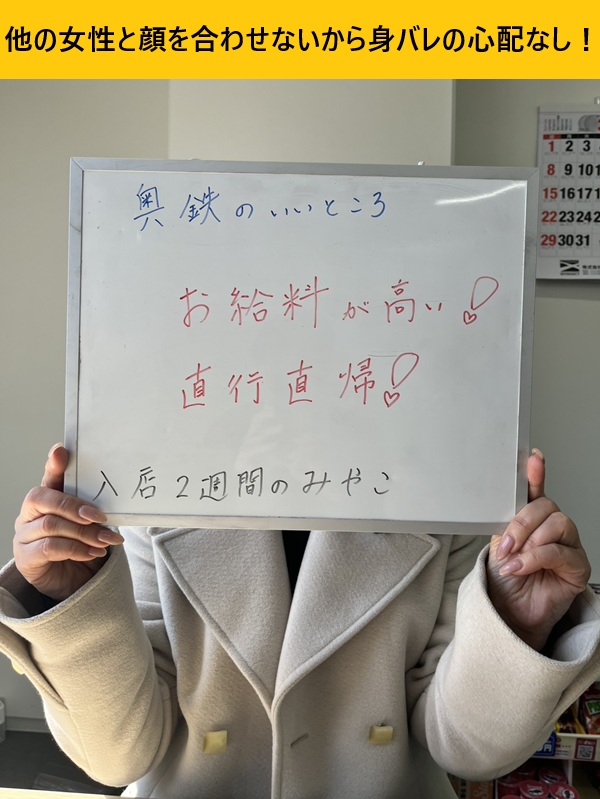 他の女性と顔を合わせないから身バレの心配なし！
奥鉄のいいところ
お給料が高い！
直行直帰！
入店2週間のみやこ
1 2 3
8 9 10 1
15 16 17 1
22 23 24 2
29 30 31
株式会